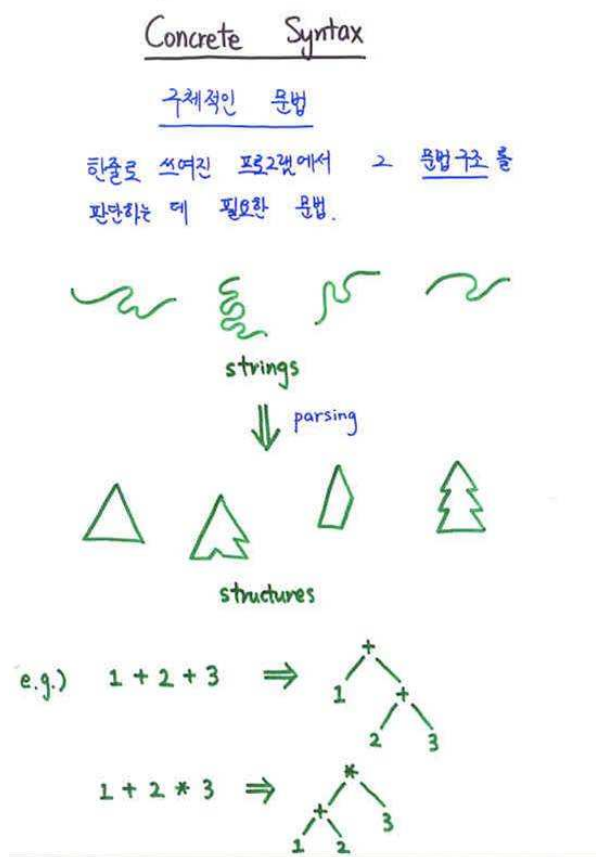 Concrete Syntax
구체적인 문법
한줄로 쓰여진 프로그램에서 그 문법구조를
판단하는 데 필요한 문법.
strings
parsing
structures
e.g.) 1 + 2 + 3 ⇒
+
1 +
2 3
1 + 2 * 3 ⇒
*
+ 3
1 2